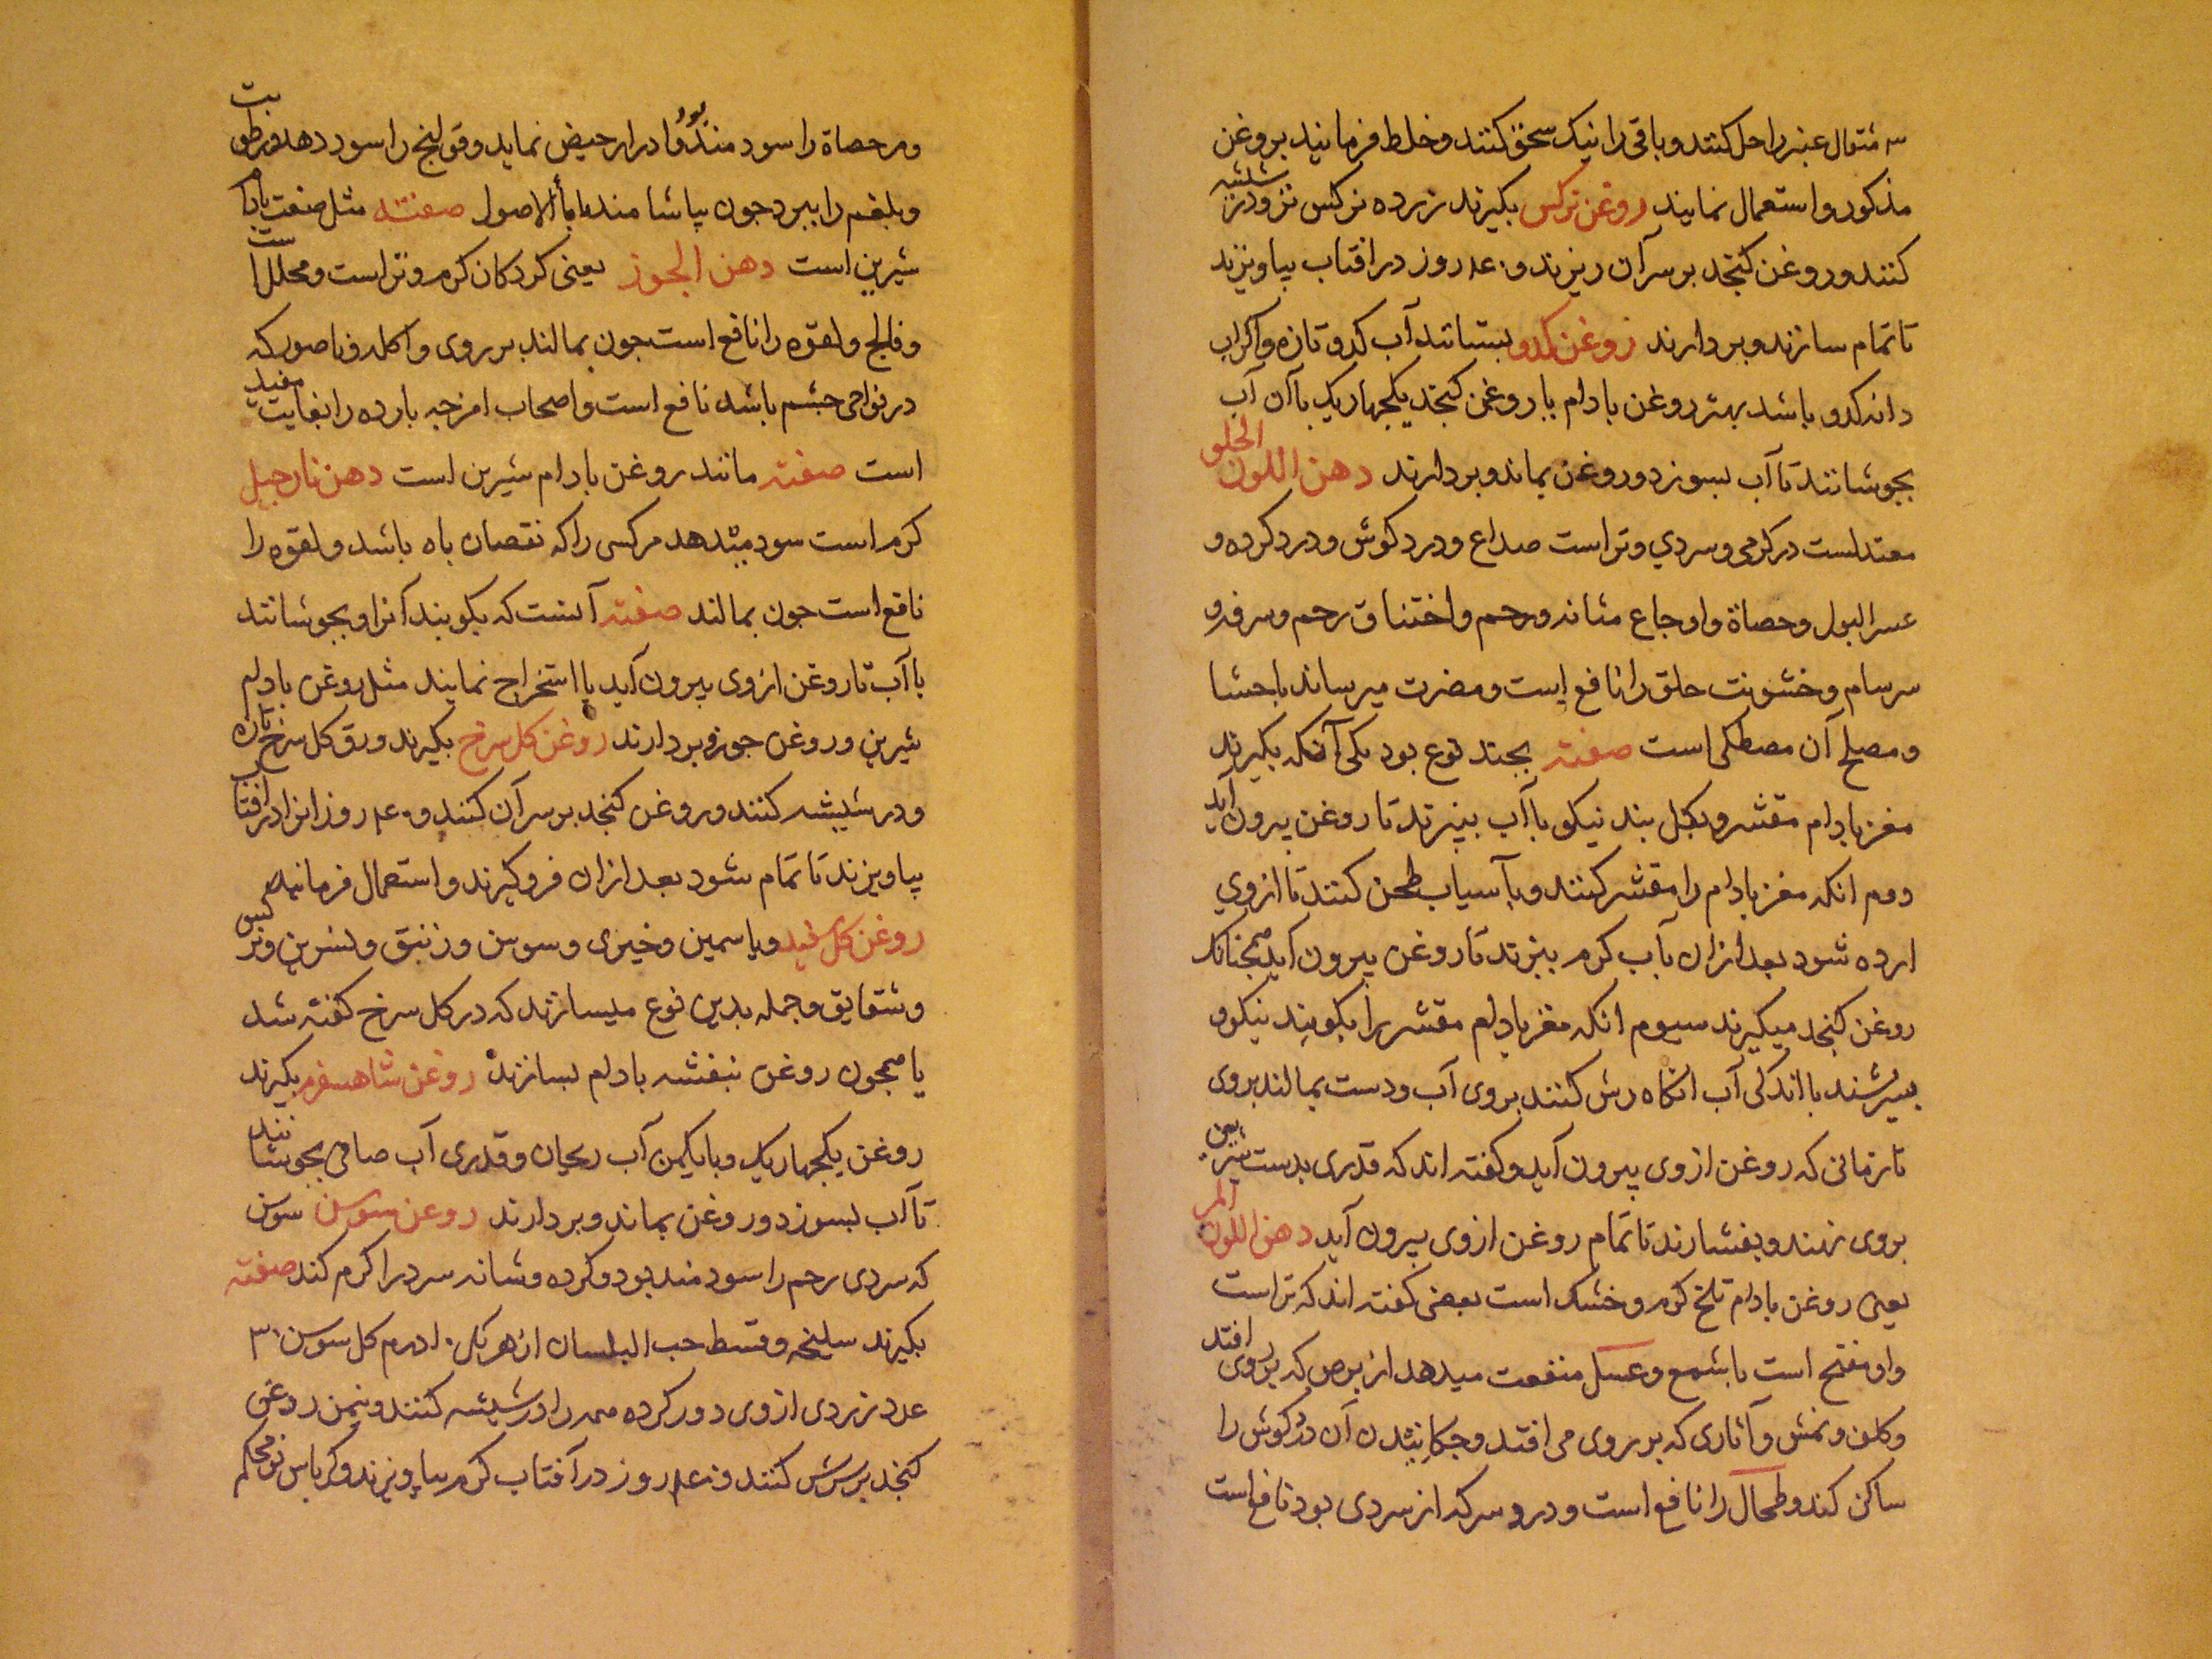 سه مثقال عنبر را حل کنند و باقی را نیک سحق کنند و خلط فرمایند بروغن
مذکور و استعمال نمایند روغن نرکس بکیرند زرده نرکس تر و در شیشه
کنند و روغن کنجد بر سر آن ریزند و ۴۰ روز در افتاب بیاویزند
تا تمام سازند و بردارند روغن کدو بستانند آب کدو تازه و اکر اب
دانه کدو باشد بهتر روغن بادام یا روغن کنجد یکجهاریک با آن آب
بجوشانند تا آب بسوزد و روغن بماند و بردارند دهن اللوز الحلو
معتدلست در کرمی و سردی و تر است صداع و درد کوش و درد کرده و
عسر البول و حصاة و اوجاع مثانه و رحم و اختناق رحم و سرفه و
سرسام و خشونت حلق را نافع است و مضرت میرساند باحشا
و مصلح آن مصطکی است صفته بجند نوع بود یکی آنکه بکیرند
مغز بادام مقشر و بکل بند نیکو با آب بپزند تا روغن بیرون آید
دوم انکه مغز بادام را مقشر کنند و بآسیاب طحن کنند تا از وی
ارده شود بعد ازان بآب کرم بپزند تا روغن بیرون آید همجنانکه
روغن کنجد میکیرند سیوم انکه مغز بادام مقشر را بکوبند نیکو و
بسرشند با اندکی آب انکاه رش کنند بروی آب و دست بمالند بروی
تا زمانی که روغن از وی بیرون آید و کفته اند که قدری بدست شیرین
بروی نهند و بفشارند تا تمام روغن از وی بیرون آید دهن اللوز المر
یعنی روغن بادام تلخ کرم و خشک است بعضی کفته اند که تر است
و او مفتح است با شمع و عسل منفعت میدهد از برص که بر روی افتد
و کلف و نمش و آثاری که بر روی می افتد و جکانیدن آن درد کوش را
ساکن کند و طحال را نافع است و درد سر که از سردی بود نافع است
و مر حصاة را سود مند بود و ادرار حیض نماید و قولنج را سود دهد و رطوبت
و بلغم را ببرد جون بیاشامند با ماء الاصول صفته مثل صنعت بادام
شیرین است دهن الجوز یعنی کردکان کرم و تر است و محلل است
و فالج و لقوه را نافع است جون بمالند بر روی و اکله و ناصور که
در نواحی جشم باشد نافع است و اصحاب امزجه بارده را بغایت مفید
است صفته مانند روغن بادام شیرین است دهن نارجیل
کرم است سود میدهد مر کسی را که نقصان باه باشد و لقوه را
نافع است جون بمالند صفته آنست که بکوبند آنرا و بجوشانند
با آب تا روغن از وی بیرون آید یا استخراج نمایند مثل روغن بادام
شیرین و روغن جوز و بردارند روغن کل سرخ بکیرند ورق کل سرخ تازه
و در شیشه کنند و روغن کنجد بر سر آن کنند و ۴۰ روز انرا در افتاب
بیاویزند تا تمام شود بعد ازان فرو کیرند و استعمال فرمایند
روغن کل سفید و یاسمین و خیری و سوسن و زنبق و نسرین و نرکس
و شقایق و جمله بدین نوع میسازند که در کل سرخ کفته شد
یا همجون روغن بنفشه بادام بسازند روغن شاهسفرم بکیرند
روغن یکجهاریک و با یکمن آب ریحان و قدری آب صافی بجوشانند
تا آب بسوزد و روغن بماند و بردارند روغن سوسن سوسن
که سردی رحم را سود مند بود و کرده و شانه سرد را کرم کند صفته
بکیرند سلیخه و قسط حب البلسان از هر یکی ۱۰ درم کل سوسن ۳۰
عدد زردی از وی دور کرده همه را در شیشه کنند و نیمن روغن
کنجد بر سرش کنند و ۴۰ روز در آفتاب کرم بیاویزند و کرباس نو محکم